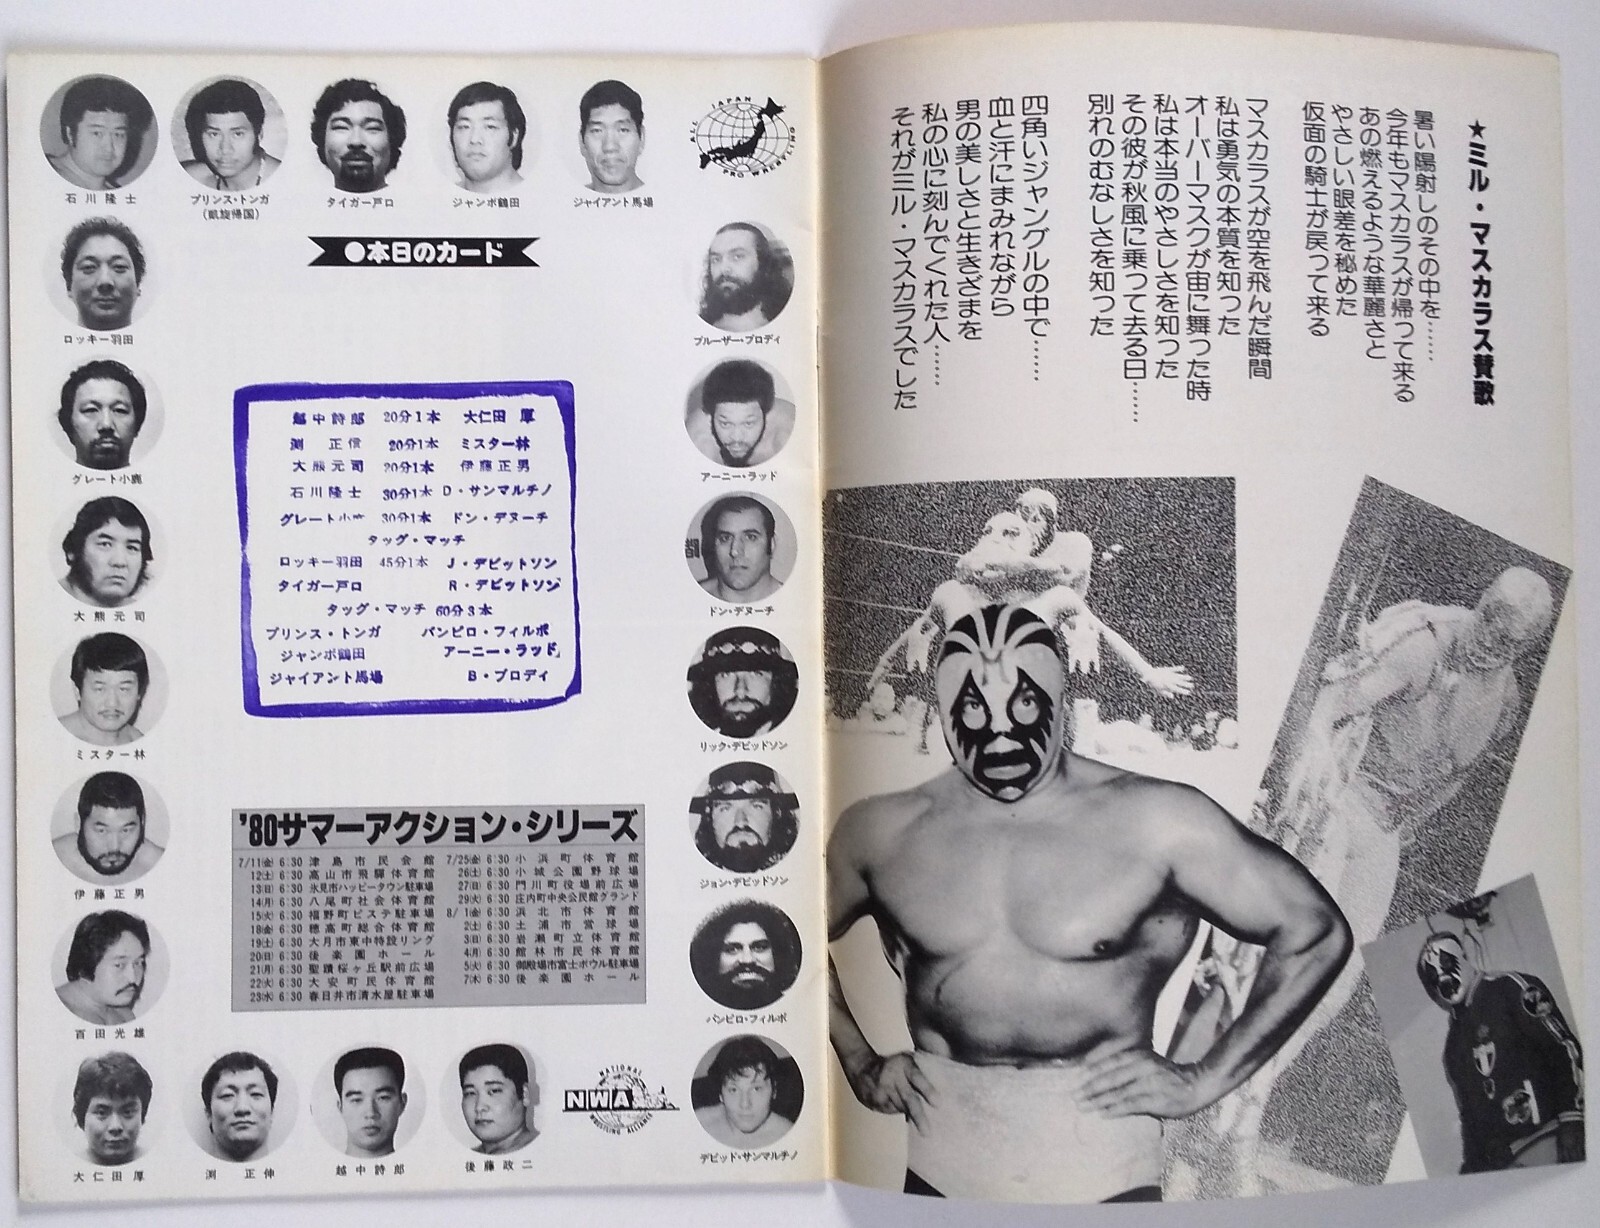 石川隆士
プリンス・トンガ
(凱旋帰国)
タイガー戸口
ジャンボ鶴田
ジャイアント馬場
ALL JAPAN
PRO WRESTLING
●本日のカード
ロッキー羽田
グレート小鹿
大熊元司
ミスター林
伊藤正男
百田光雄
大仁田厚
渕正伸
越中詩郎
後藤政二
NATIONAL
NWA
WRESTLING ALLIANCE
ブルーザー・ブロディ
アーニー・ラッド
ドン・デヌーチ
リック・デビッドソン
ジョン・デビッドソン
バンピロ・フィルポ
デビッド・サンマルチノ
越中詩郎 20分1本 大仁田厚
渕正信 20分1本 ミスター林
大熊元司 20分1本 伊藤正男
石川隆士 30分1本 D・サンマルチノ
グレート小鹿 30分1本 ドン・デヌーチ
タッグ・マッチ
ロッキー羽田 45分1本 J・デビットソン
タイガー戸口 R・デビットソン
タッグ・マッチ 60分3本
プリンス・トンガ バンピロ・フィルポ
ジャンボ鶴田 アーニー・ラッド
ジャイアント馬場 B・ブロディ
'80サマーアクション・シリーズ
7/11(金) 6:30 津島市民会館
12(土) 6:30 高山市飛騨体育館
13(日) 6:30 氷見市ハッピータウン駐車場
14(月) 6:30 八尾町社会体育館
15(火) 6:30 福野町ピステ駐車場
18(金) 6:30 穂高町総合体育館
19(土) 6:30 大月市東中特設リング
20(日) 6:30 後楽園ホール
21(月) 6:30 聖蹟桜ヶ丘駅前広場
22(火) 6:30 大安町民体育館
23(水) 6:30 春日井市清水屋駐車場
7/25(金) 6:30 小浜町体育館
26(土) 6:30 小城公園野球場
27(日) 6:30 門川町役場前広場
29(火) 6:30 庄内町中央公民館グランド
8/1(金) 6:30 浜北市体育館
2(土) 6:30 土浦市営球場
3(日) 6:30 岩瀬町立体育館
4(月) 6:30 館林市民体育館
5(火) 6:30 御殿場市富士ボウル駐車場
7(木) 6:30 後楽園ホール
★ミル・マスカラス賛歌
暑い陽射しのその中を……
今年もマスカラスが帰って来る
あの燃えるような華麗さと
やさしい眼差を秘めた
仮面の騎士が戻って来る
マスカラスが空を飛んだ瞬間
私は勇気の本質を知った
オーバーマスクが宙に舞った時
私は本当のやさしさを知った
その彼が秋風に乗って去る日……
別れのむなしさを知った
四角いジャングルの中で……
血と汗にまみれながら
男の美しさと生きざまを
私の心に刻んでくれた人……
それがミル・マスカラスでした